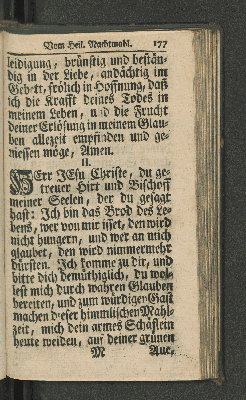 Vom Heil. Nachtmahl. 177
leidigung, brünstig und bestän-
dig in der Liebe, andächtig im
Gebett, frölich in Hoffnung, daß
ich die Krafft deines Todes in
meinem Leben, und die Frucht
deiner Erlösung in meinem Glau-
ben allezeit empfinden und ge-
niessen möge, Amen.
II.
HErr JEsu Christe, du ge-
treuer Hirt und Bischoff
meiner Seelen, der du gesagt
hast: Ich bin das Brod des Le-
bens, wer von mir isset, den wird
nicht hungern, und wer an mich
glaubet, den wird nimmermehr
dürsten. Ich komme zu dir, und
bitte dich demüthiglich, du wol-
lest mich durch wahren Glauben
bereiten, und zum würdigen Gast
machen dieser himmlischen Mahl-
zeit, mich dein armes Schäflein
heute weiden, auf deiner grünen
M Aue,